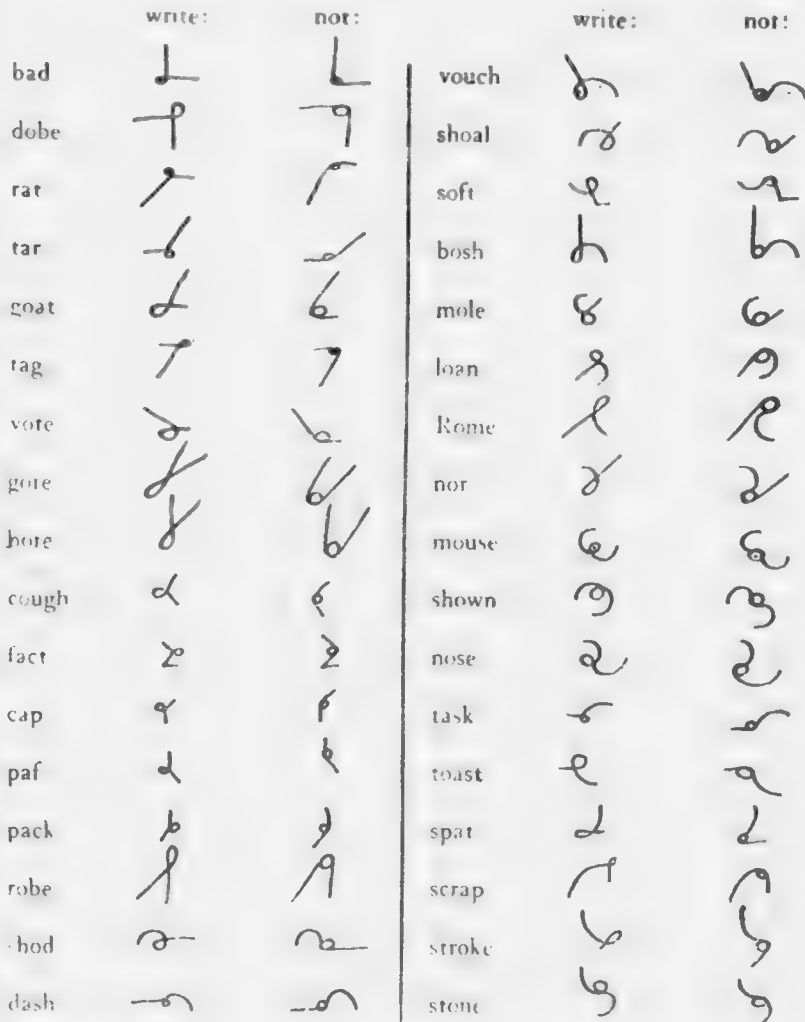 write: not:
bad
dobe
rat
tar
goat
tag
vote
gore
bore
cough
fact
cap
paf
pack
robe
shod
dash
write: not:
vouch
shoal
soft
bosh
mole
loan
Rome
nor
mouse
shown
nose
task
toast
spat
scrap
stroke
stone